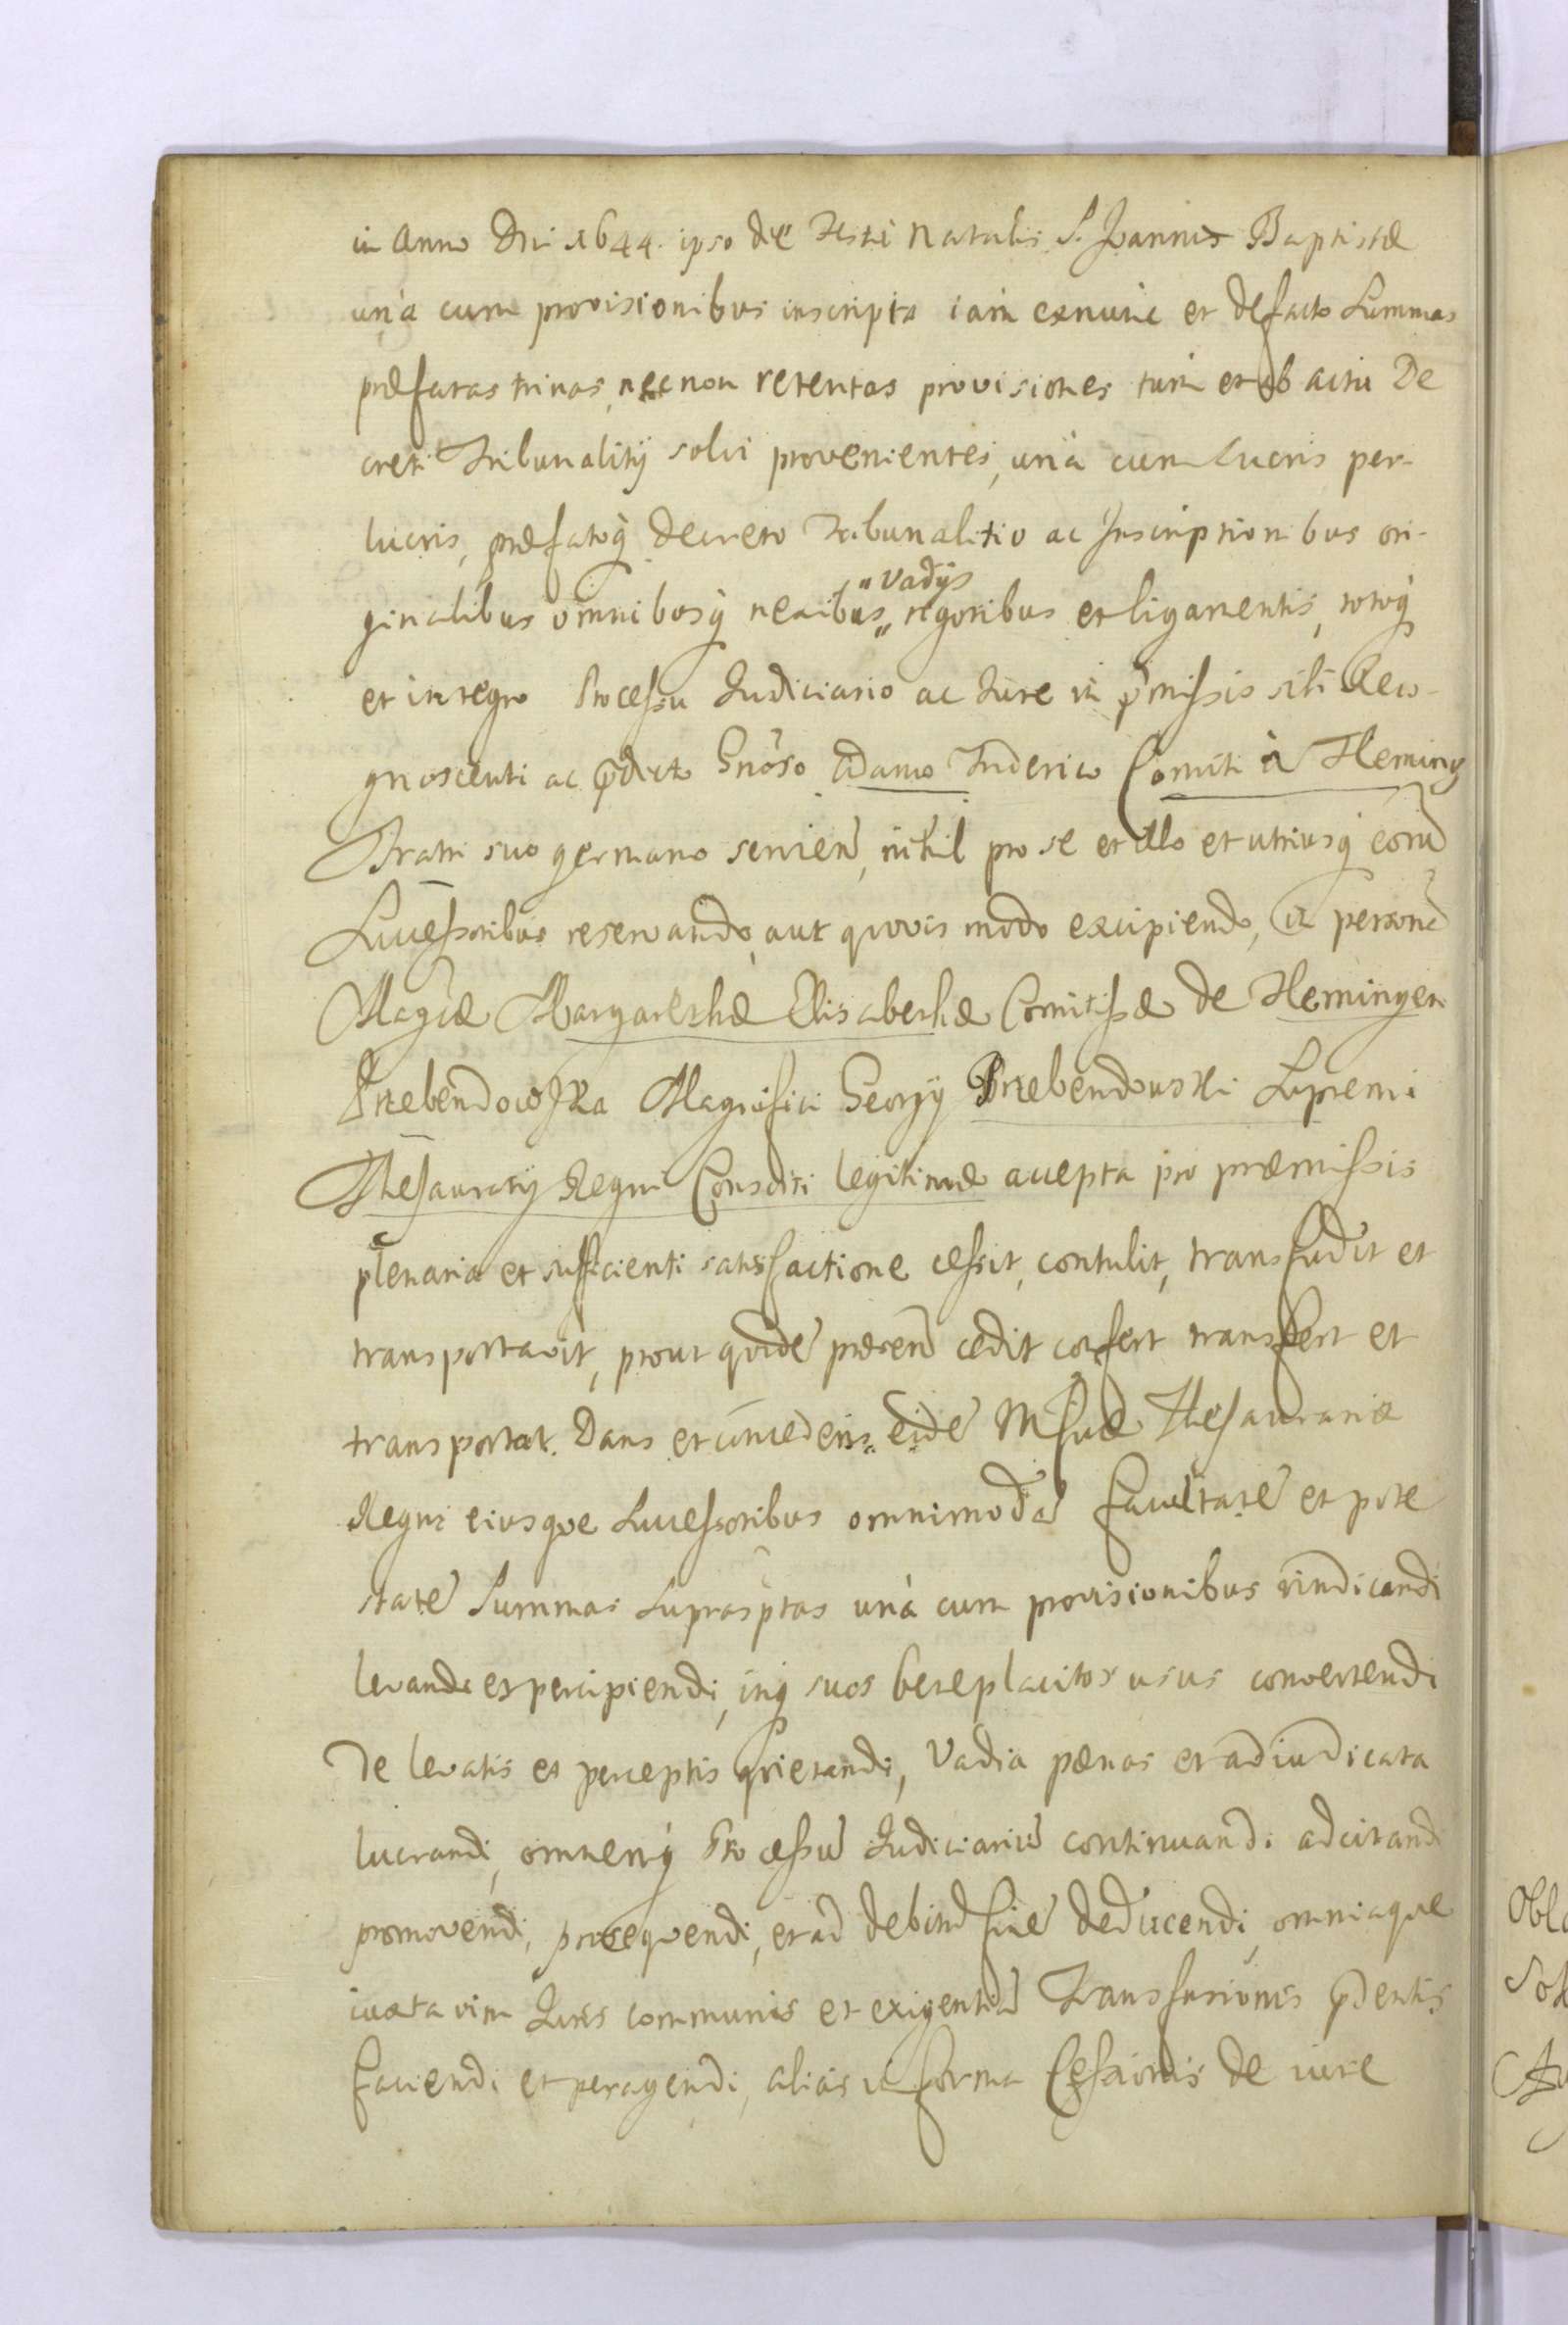 in Anno Dni 1644. ipso die Festi Natalis S. Joannis Baptistæ
unà cum provisionibus inscripta iam exnunc et defacto Summas
præfatas trinas, necnon retentas provisiones tum et ab actu De
creti Tribunalitij solvi provenientes, unà cum lucris per-
lucris, præfatoq̀ Decreto Tribunalitio ac Inscriptionibus ori-
"Vadijs
ginalibus omnibusq̀ nexibus„ rigoribus et ligamentis, totoq̀
et integro Processu Iudiciario ac Iure in p̃missis sibi Reco-
gnoscenti ac p̃dicto Gnõso Adamo Friderico Comiti à Fleming
Fratri suo germano servien̄, nihil pro se et illo et utriusq̀ eorū
Successoribus reservando, aut quovis modo excipiendo, in personā
Magcæ Margarethæ Elisabethæ Comitissæ de Flemingen
Przebendowska Magnifici Georgij Przebendowski Supremi
Thesaurarij Regni Consorti legitimæ accepta pro præmissis
plenaria et sufficienti satisfactione cessit, contulit, transfudit et
transportavit, prout quidē præsen̄ cedit confert transfert et
transportat. Dans et concedens„ eidē Mficæ Thesaurariæ
Regni eiusque Successoribus omnimodā facultatē et pote
statē Summas suprasp̃tas unà cum provisionibus vindicandi
levandi et percipiendi, inq̀ suos beneplacitos usus convertendi
De levatis et perceptis quietandi, Vadia pœnas et adiudicata
lucrandi, omnemq̀ Processū Iudiciariū continuandi adcitandi
promovendi, prosequendi, et ad debitū finē deducendi, omniaque
iuxta vim Iuris communis et exigentiā Transfusionis p̃dentis
faciendi et peragendi, alias in forma Cessionis de iure